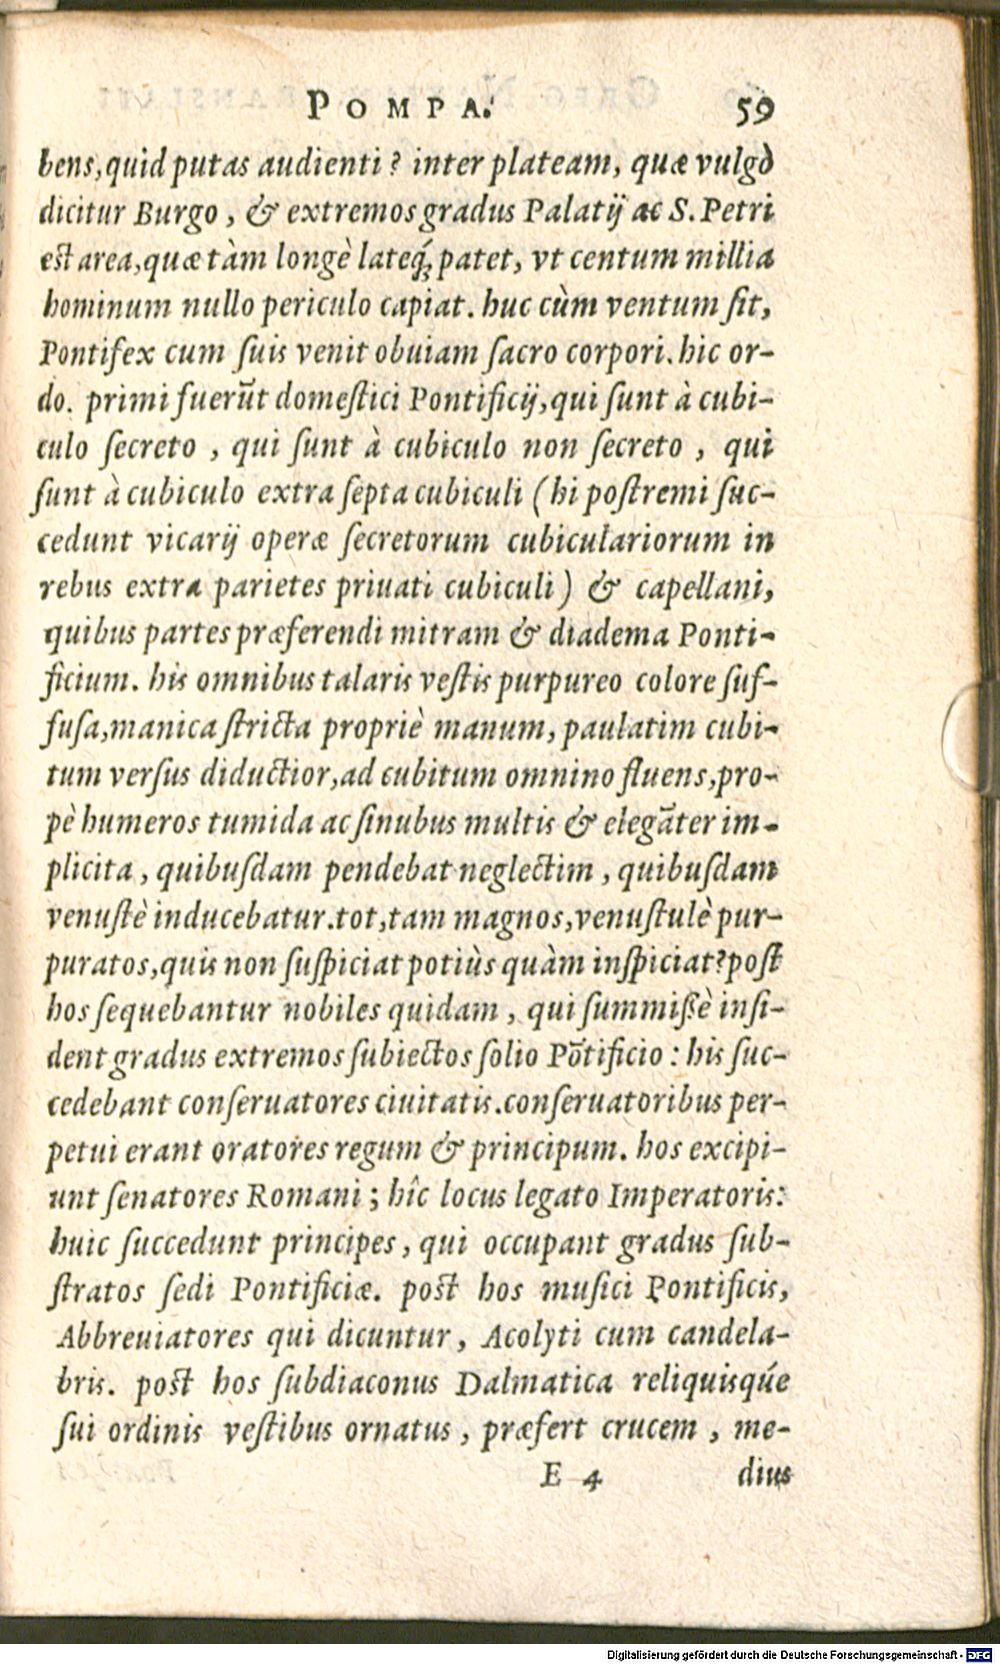 POMPA. 59
bens, quid putas audienti? inter plateam, quæ vulgò
dicitur Burgo, & extremos gradus Palatij ac S. Petri
est area, quæ tàm longè lateq́; patet, vt centum millia
hominum nullo periculo capiat. huc cùm ventum ſit,
Pontifex cum ſuis venit obuiam ſacro corpori. hic or-
do. primi fuerūt domeſtici Pontificij, qui ſunt à cubi-
culo ſecreto, qui ſunt à cubiculo non ſecreto, qui
ſunt à cubiculo extra ſepta cubiculi (hi poſtremi ſuc-
cedunt vicarij operæ ſecretorum cubiculariorum in
rebus extra parietes priuati cubiculi) & capellani,
quibus partes præferendi mitram & diadema Ponti-
ficium. his omnibus talaris veſtis purpureo colore ſuf-
fuſa, manica ſtricta propriè manum, paulatim cubi-
tum verſus diductior, ad cubitum omnino fluens, pro-
pè humeros tumida ac ſinubus multis & elegāter im-
plicita, quibuſdam pendebat neglectim, quibuſdam
venuſtè inducebatur. tot, tam magnos, venuſtulè pur-
puratos, quis non ſuſpiciat potiùs quàm inſpiciat? poſt
hos ſequebantur nobiles quidam, qui ſummißè inſi-
dent gradus extremos ſubiectos ſolio Pōtificio: his ſuc-
cedebant conſeruatores ciuitatis. conſeruatoribus per-
petui erant oratores regum & principum. hos excipi-
unt ſenatores Romani; hîc locus legato Imperatoris:
huic ſuccedunt principes, qui occupant gradus ſub-
ſtratos ſedi Pontificiæ. poſt hos muſici Pontificis,
Abbreuiatores qui dicuntur, Acolyti cum candela-
bris. poſt hos ſubdiaconus Dalmatica reliquisqúe
ſui ordinis veſtibus ornatus, præfert crucem, me-
E 4 dius
Digitalisierung gefördert durch die Deutsche Forschungsgemeinschaft - DFG